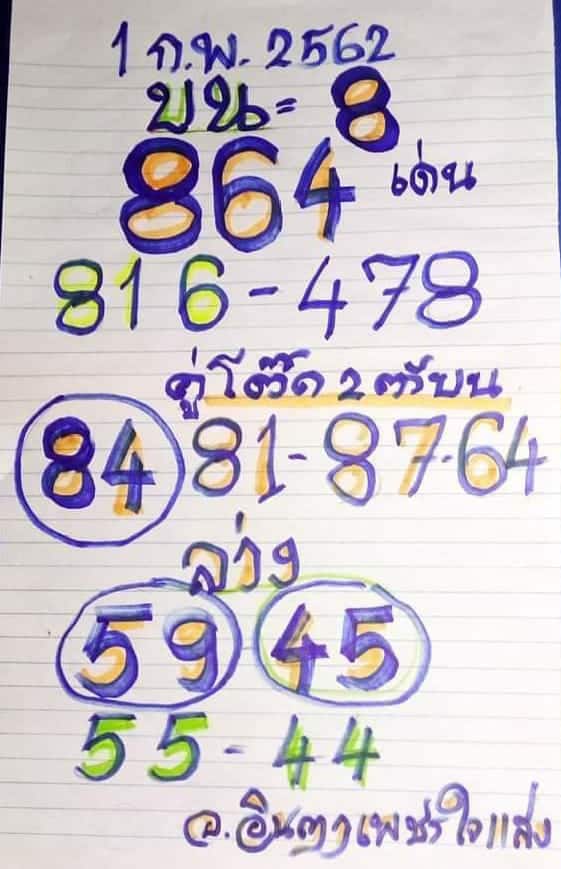 1 ก.พ. 2562
บน = 8
864 เด่น
816 - 478
คู่โต๊ด 2 ตัวบน
84 81 - 87 - 64
ล่าง
59 45
55 - 44
อ.อินตาเพชรใจแสง